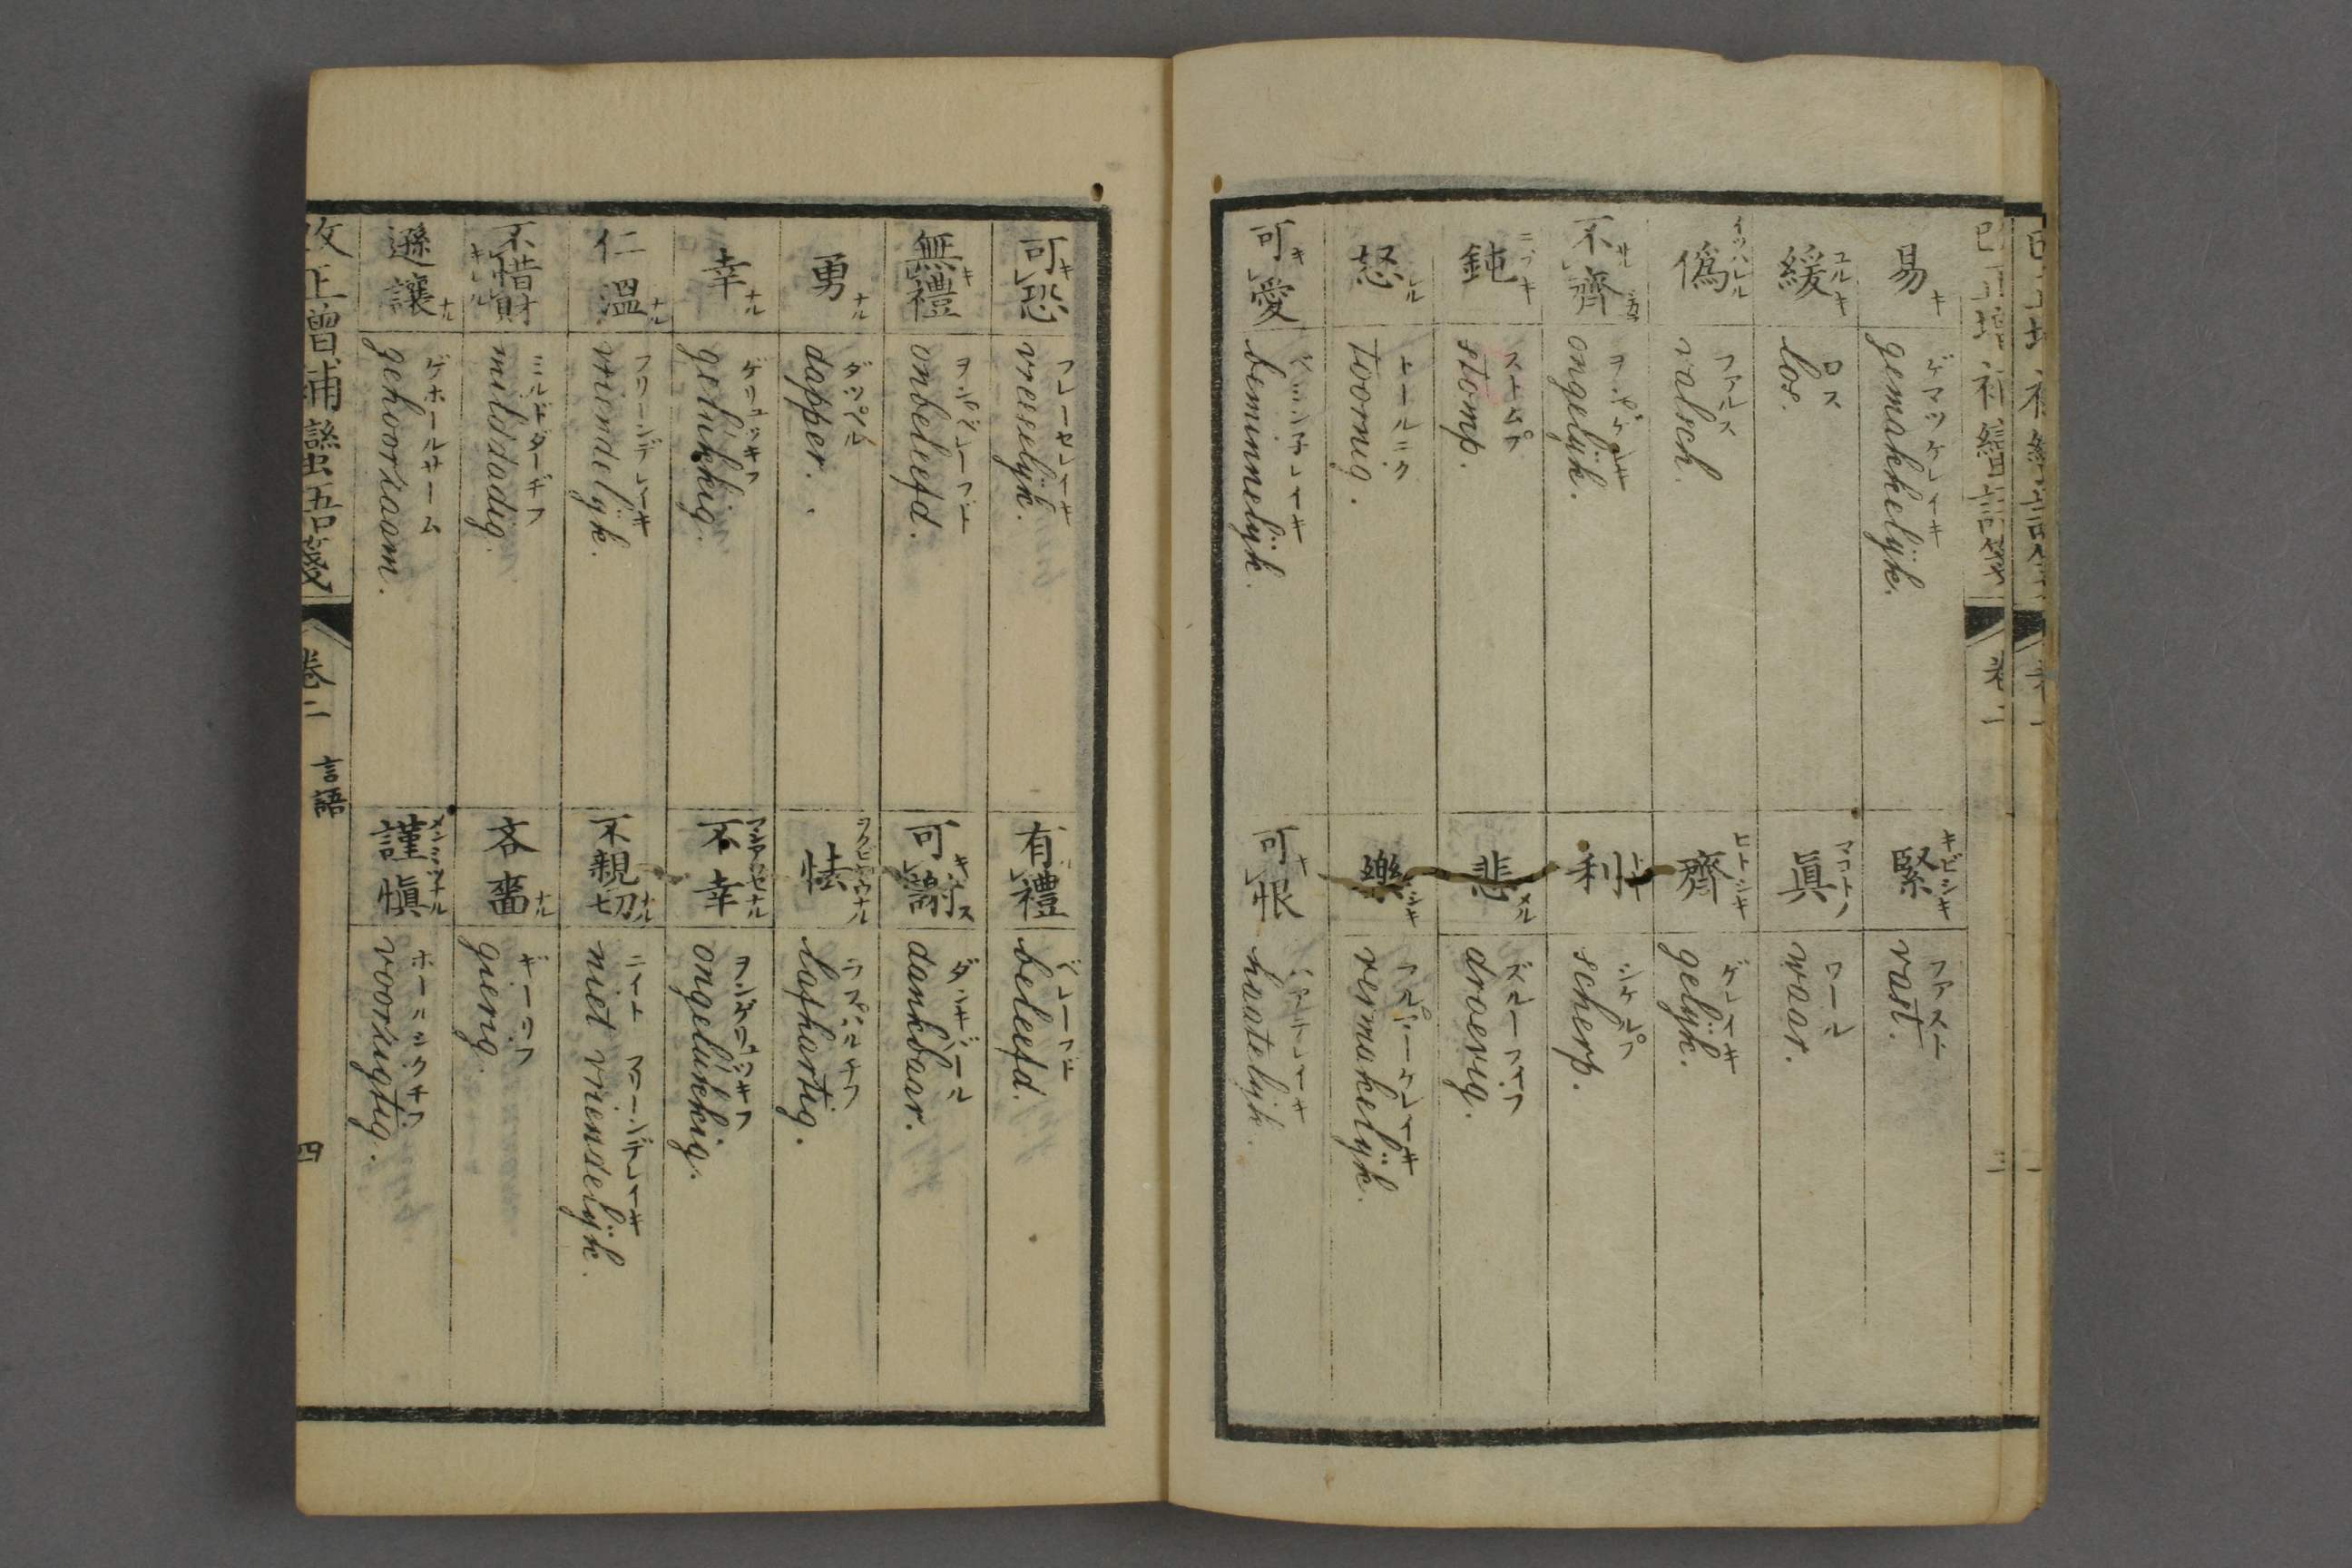 易キ
ゲマツケレイキ
gemakkelijk.
緊キビシキ
ファスト
vast.
緩ユルキ
ロス
los.
眞マコトノ
ワール
waar.
偽イツハレル
ファルス
valsch.
齊ヒトシキ
ゲレイキ
gelijk.
不齊
ヲンゲレイキ
ongelijk.
利トキ
シケルプ
scherp.
鈍ニブキ
ストムプ
stomp.
悲メル
ドルーフイフ
droevig.
怒レル
トールニク
toornig.
樂シキ
vermakelijk.
可愛キ
ベミン子レイキ
beminnelijk.
可恨キ
ハーテレイキ
haatelijk.
可恐キ
フレーセレイキ
vreesselijk.
有禮
ベレーフト
beleefd.
無禮キ
ヲンベレーフト
onbeleefd.
可謝キス
ダンキバール
dankbaar.
勇ナル
ダツペル
dapper.
怯ヲクビヤウナル
ラフハルチフ
lafhartig.
幸ナル
ゲリュッキフ
gelukkig.
不幸フシアワセナル
ヲンゲリュッキフ
ongelukkig.
仁温ナル
フリーンデレイキ
vriendelijk.
不親切ナル
ニイト フリーンデレイキ
niet vriendelijk.
不惜財
ミルドダーヂフ
milddadig.
吝嗇ナル
ギーリフ
gierig.
遜讓ナル
ゲホールサーム
gehoorzaam.
謹愼
ホールシクチフ
voorzigtig.
改正增補蠻語箋
卷二
言語
四